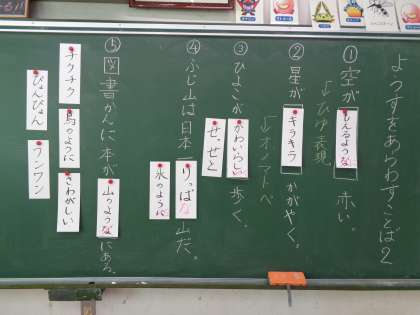 ようすをあらわすことば2
①空がもえるような赤い。
↓ひゆ表現
②星がキラキラかがやく。
↓オノマトペ
③ひよこがかわいらしい歩く。
せっせと
④ふじ山は日本一りっぱな山だ。
氷のように
⑤図書かんに本が山のようなにある。
チクチク
鳥のように
さわがしい
ぴょんぴょん
ワンワン